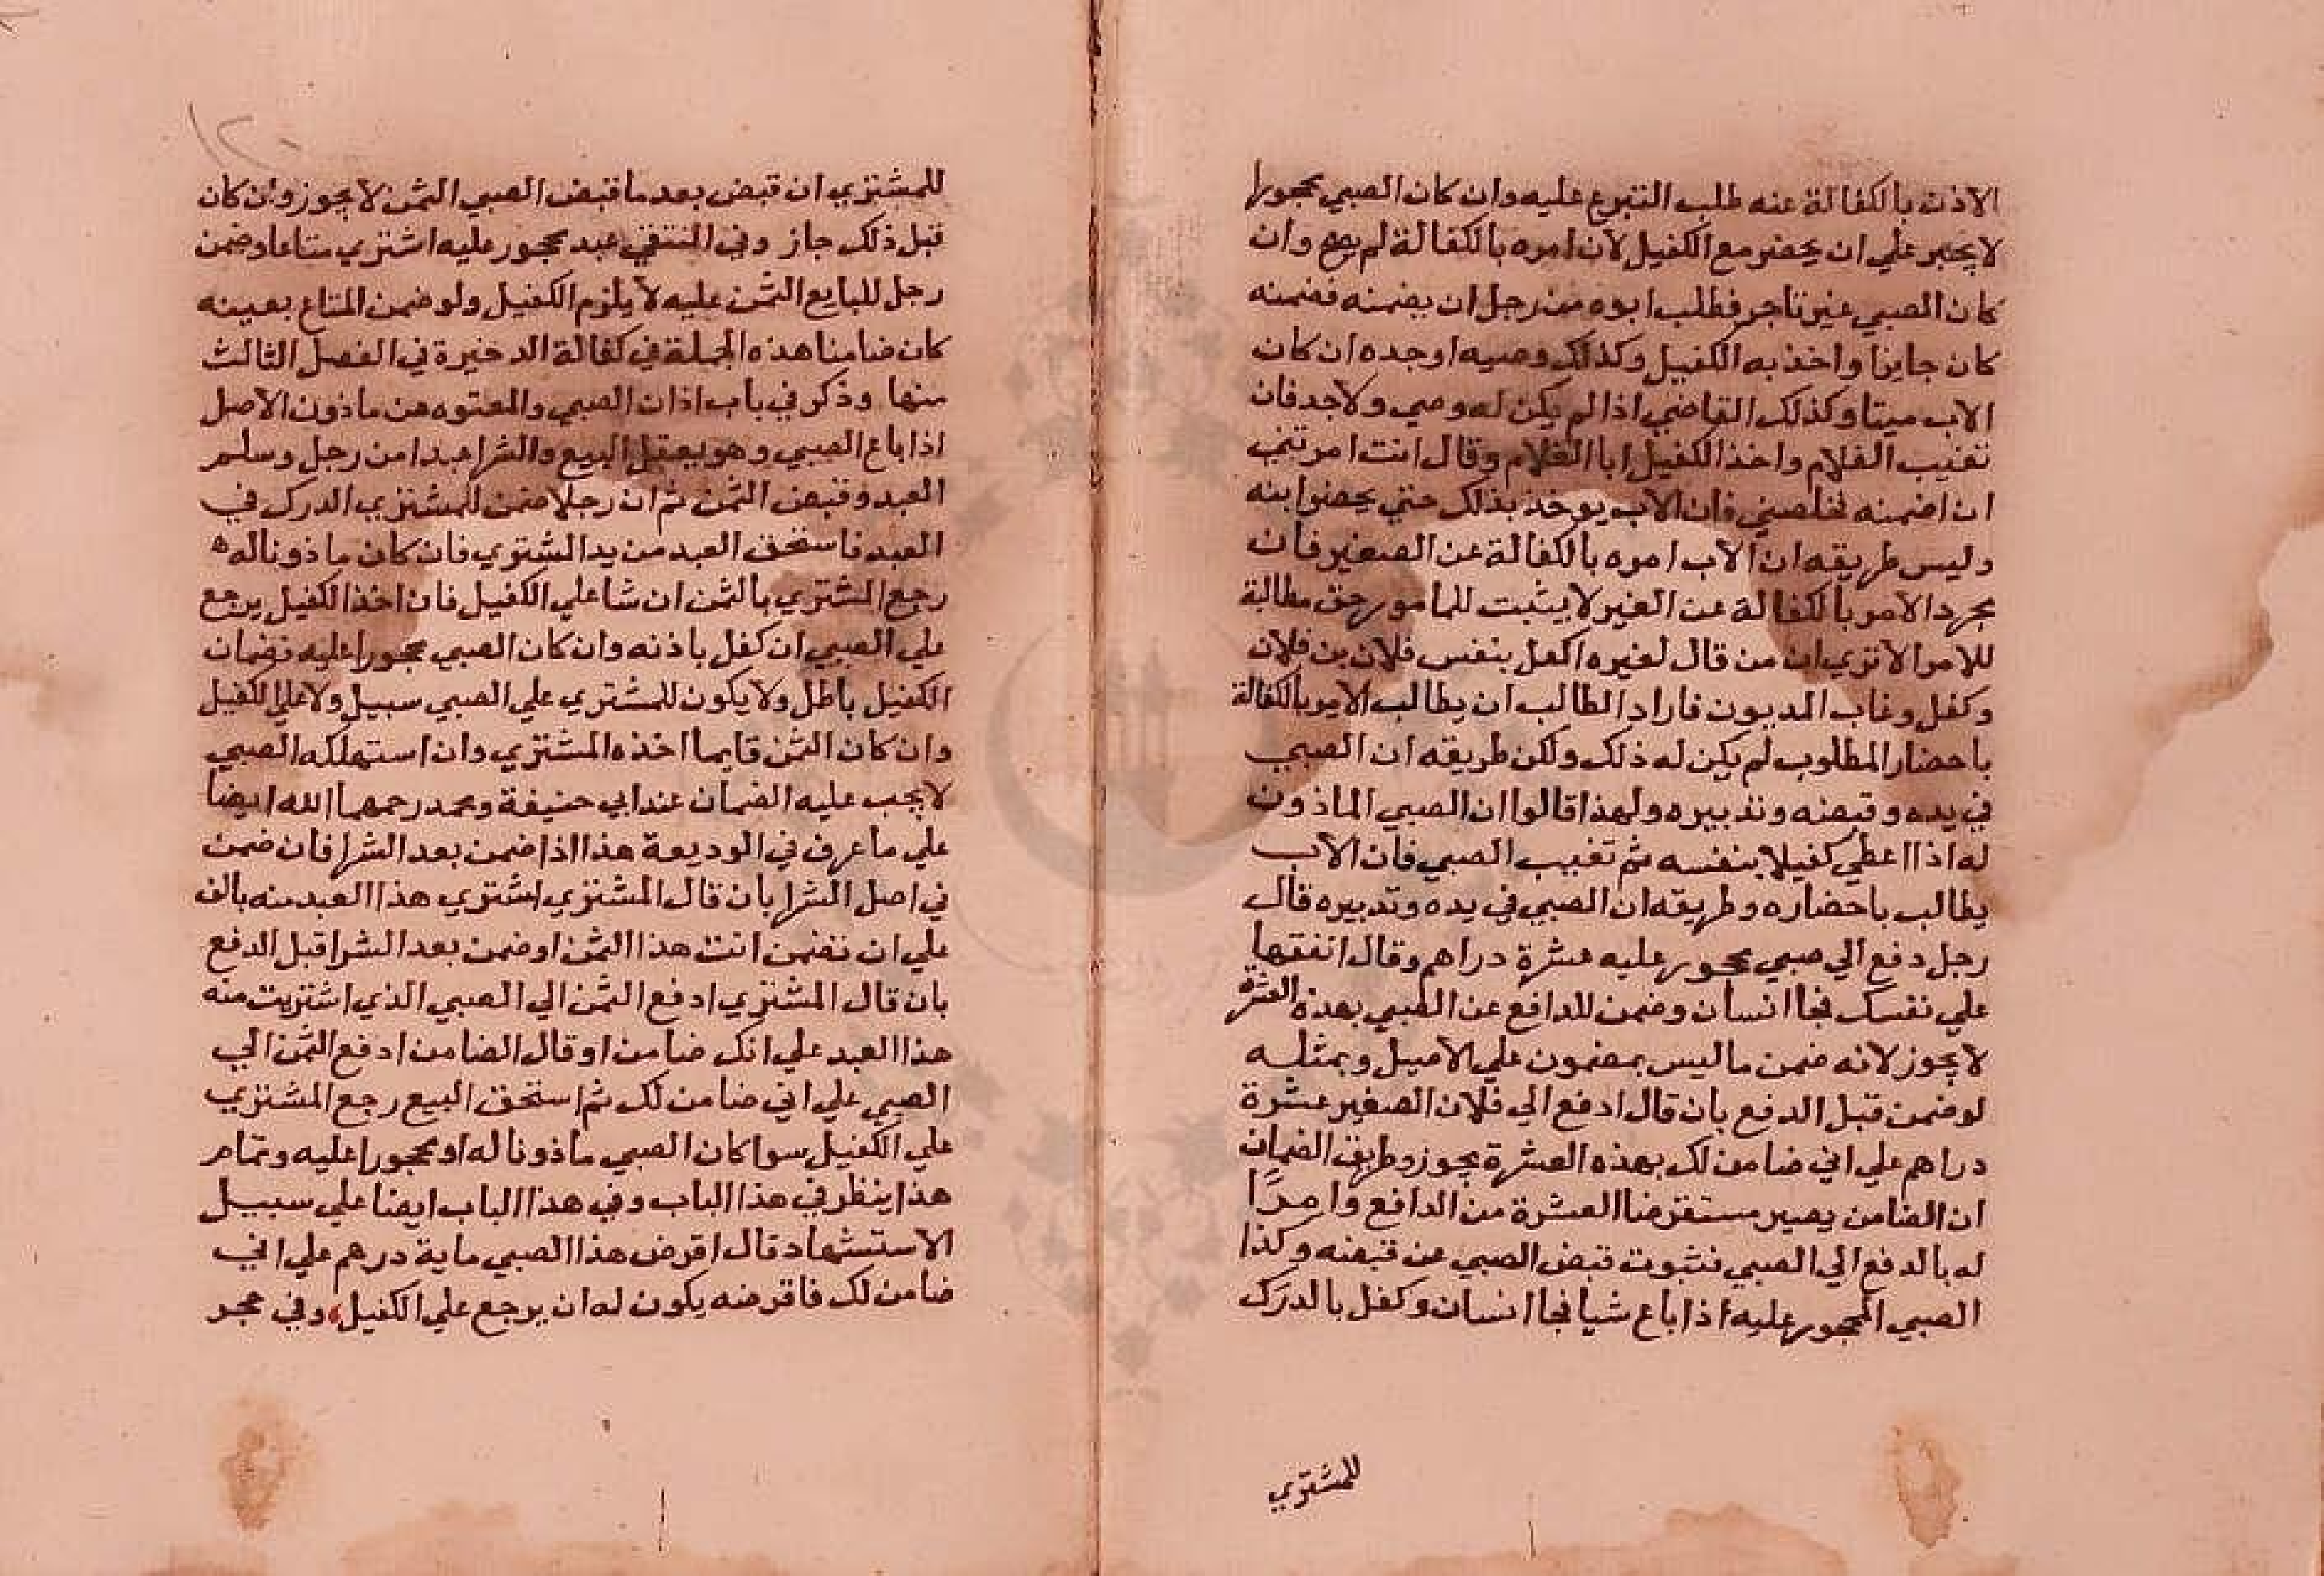 الاذن بالكفالة عنه طلب التبرع عليه وان كان الصبي محجورا
لا يجبر علي ان يحضر مع الكفيل لان امره بالكفالة لم يصح وان
كان الصبي غير تاجر فطلب ابوه من رجل ان يضمنه فضمنه
كان جايزا واخذ به الكفيل وكذلك وصيه او جده ان كان
الاب ميتا وكذلك القاضي اذا لم يكن له وصي ولا جد فان
تغيب الغلام واخذ الكفيل ابا الغلام وقال انت امرتني
ان اضمنه فخلصني فان الاب يوخذ بذلك حتي يحضر ابنه
وليس طريقه ان الاب امره بالكفالة عن الصغير فان
مجرد الامر بالكفالة عن الغير لا يثبت للمامور حق مطالبة
للامر الا تري ان من قال لغيره اكفل بنفس فلان بن فلان
وكفل وغاب المديون فاراد الطالب ان يطالب الامر بالكفالة
باحضار المطلوب لم يكن له ذلك ولكن طريقه ان الصبي
في يده وقبضه وتدبيره ولهذا قالوا ان الصبي الماذون
له اذا اعطي كفيلا بنفسه ثم تغيب الصبي فان الاب
يطالب باحضاره وطريقه ان الصبي في يده وتدبيره قال
رجل دفع الي صبي محجور عليه عشرة دراهم وقال انفقها
علي نفسك فجا انسان وضمن للدافع عن الصبي بهذه العشرة
لا يجوز لانه ضمن ما ليس بمضمون علي الاصيل وبمثله
لو ضمن قبل الدفع بان قال ادفع الي فلان الصغير عشرة
دراهم علي اني ضامن لك بهذه العشرة يجوز وطريق الضمان
ان الضامن يصير مستقرضا العشرة من الدافع وامرًا
له بالدفع الي الصبي فثبوت قبض الصبي عن قبضه وكذا
الصبي المحجور عليه اذا باع شيا فجا انسان وكفل بالدرك
للمشتري
١٢٠
للمشتري ان قبض بعد ما قبض الصبي الثمن لا يجوز وان كان
قبل ذلك جاز وفي المنتقي عبد محجور عليه اشتري متاعا وضمن
رجل للبايع الثمن عليه لا يلزم الكفيل ولو ضمن المتاع بعينه
كان ضامنا هذه الجملة في كفالة الدخيرة في الفصل الثالث
منها وذكر في باب اذان الصبي والمعتوه من ماذون الاصل
اذا باع الصبي وهو يعقل البيع والشرا عبدا من رجل وسلم
العبد وقبض الثمن ثم ان رجلا ضمن للمشتري الدرك في
العبد فاستحق العبد من يد المشتري فان كان ماذونا له
رجع المشتري بالثمن ان شا علي الكفيل فان اخذ الكفيل يرجع
علي الصبي ان كفل باذنه وان كان الصبي محجورا عليه فضمان
الكفيل باطل ولا يكون للمشتري علي الصبي سبيل ولا علي الكفيل
وان كان الثمن قايما اخذه المشتري وان استهلكه الصبي
لا يجب عليه الضمان عند ابي حنيفة ومحمد رحمهما الله ايضا
علي ما عرف في الوديعة هذا اذا ضمن بعد الشرا فان ضمن
في اصل الشرا بان قال المشتري اشتري هذا العبد منه بالف
علي ان تضمن انت هذا الثمن او ضمن بعد الشرا قبل الدفع
بان قال المشتري ادفع الثمن الي الصبي الذي اشتريت منه
هذا العبد علي انك ضامن او قال الضامن ادفع الثمن الي
الصبي علي اني ضامن لك ثم استحق البيع رجع المشتري
علي الكفيل سوا كان الصبي ماذونا له او محجورا عليه وتمام
هذا ينظر في هذا الباب وفي هذا الباب ايضا علي سبيل
الاستشهاد قال اقرض هذا الصبي ماية درهم علي اني
ضامن لك فاقرضه يكون له ان يرجع علي الكفيل، وفي حجر